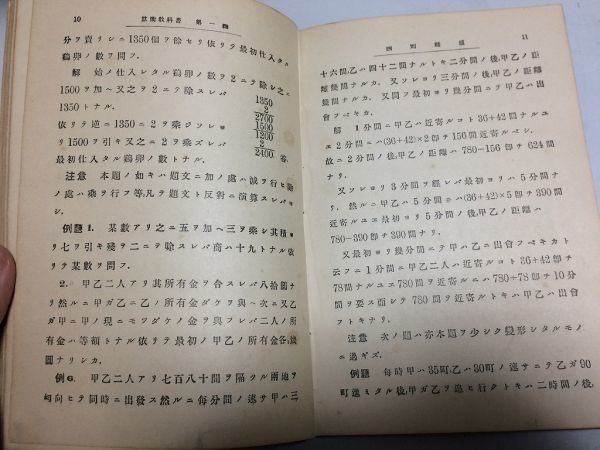 10 算術敎科書 第一編
分ヲ賣リシニ1350個ヲ餘セリ依リテ最初仕入タル
鷄卵ノ數ヲ問フ.
解 始ノ仕入レタル鷄卵ノ數ヲ2ニテ除シ之ニ
1500ヲ加ヘ又之ヲ2ニテ除スレバ
1350トナル.
依リテ逆ニ1350ニ2ヲ乘ジソレヨ
リ1500ヲ引キ又之ニ2ヲ乘ズレバ
最初仕入タル鷄卵ノ數トナル.
1350
2
2700
1500
1200
2
2400 答.
注意 本題ノ如キハ題文ニ加ノ處ハ減ヲ行ヒ除
ノ處ハ乘ヲ行フ等凡テ題文ト反對ニ演算スレバヨ
シ.
例題1. 某數アリ之ニ五ヲ加ヘ三ヲ乘シ其積ヨ
リ七ヲ引キ殘ヲ二ニテ除スレバ商ハ十九トナル依
リテ某數ヲ問フ.
2. 甲乙二人アリ其所有金ヲ合スレバ八拾圓ナ
リ然ルニ甲ガ乙ニ乙ノ所有金ダケヲ與ヘ次ニ又乙
ガ甲ニ甲ノ現ニモツダケノ金ヲ與フレバ二人ノ所
有金ハ等額トナル依リテ最初ノ甲乙ノ所有金各幾
圓ナリシカ.
例6. 甲乙二人アリ七百八十間ヲ隔ツル兩地ヲ
相向ヒテ同時ニ出發ス然ルニ每分間ノ速サ甲ハ三
11
十六間,乙ハ四十二間ナルトキ二分間ノ後,甲乙ノ距
離幾間ナルカ. 又ソレヨリ三分間ノ後,甲乙ノ距離
幾間ナルカ. 又問フ最初ヨリ幾分間ニテ甲乙ハ出
會フベキカ.
解 1分間ニ甲乙ハ近寄ルコト36+42間ナルユ
ヱ2分間ニハ(36+42)×2卽チ156間近寄ルベシ.
故ニ2分間ノ後,甲乙ノ距離ハ780−156卽チ624間
ナリ.
又ソレヨリ3分間ヲ經レバ最初ヨリハ5分間ナ
リ. 然ルニ甲乙ハ5分間ニハ(36+42)×5卽チ390間
近寄ルユエ最初ヨリ5分間ノ後,甲乙ノ距離ハ
780−390卽チ390間ナリ.
又最初ヨリ幾分間ニテ甲ハ乙ニ出會フベキカト
云フニ1分間ニ甲乙二人ハ近寄ルコト36+42卽チ
78間ナルユエ780間ヲ近寄ルニハ780÷78卽チ10分
間ヲ要ス而シテ780間ヲ近寄ルトキハ甲乙ハ出會
フトキナリ.
注意 次ノ題ハ亦本題ヲ少シク變形シタルモノ
ニ過ギズ.
例題 每時甲ハ35町,乙ハ30町ノ速サニテ乙ガ90
町進ミタル後,甲ガ乙ヲ追ヒ行クトキハ二時間ノ後,